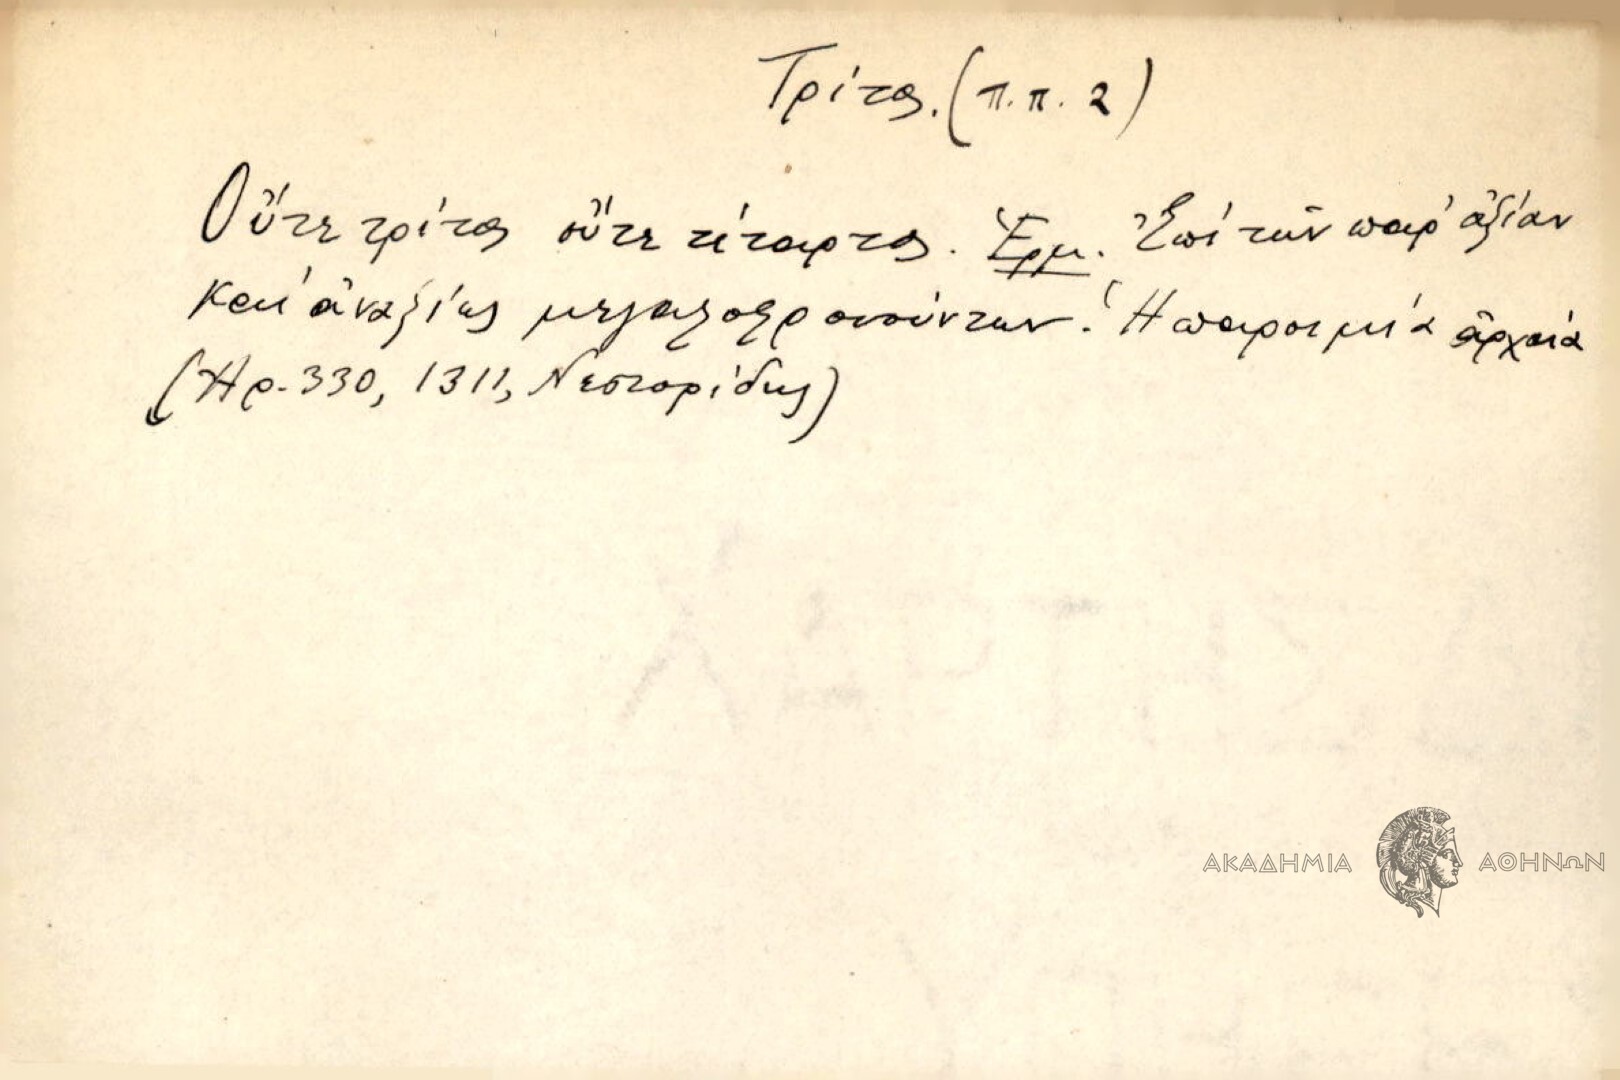 Τρίτος. (π.π. 2)
Οὔτε τρίτος οὔτε τέταρτος. Ἑρμ. Ἐπί τῶν παρ' ἀξίαν
καί ἀναξίως μεγαλοφρονούντων. Ἡ παροιμία ἀρχαία
(Ἠρ. 330, 1311, Νεστορίδης)
ΑΚΑΔΗΜΙΑ ΑΘΗΝΩΝ